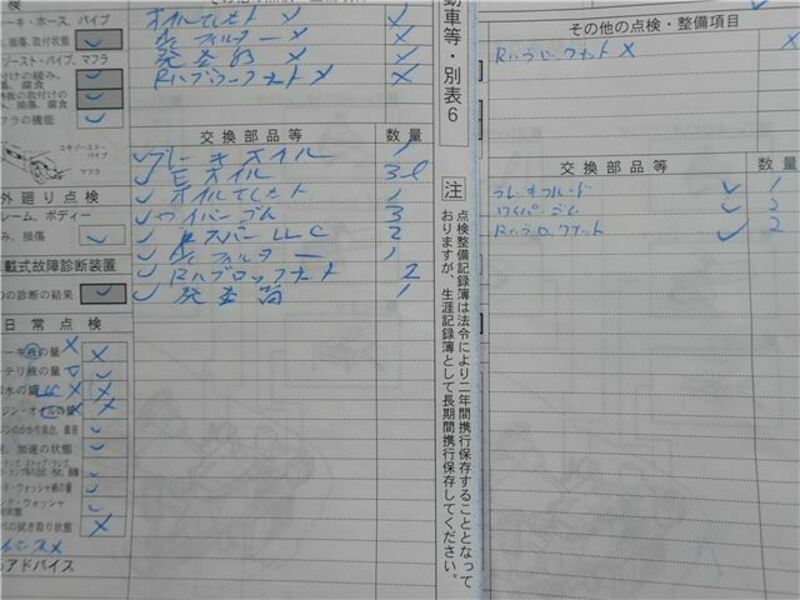 検
ーキ・ホース、パイプ
、損傷、取付状態
ゾースト・パイプ、マフラ
付けの緩み、
、損傷、腐食
板の取付けの
、損傷、腐食
フラの機能
エキゾースト・
パイプ
マフラ
外廻り点検
レーム、ボディー
み、損傷
載式故障診断装置
の診断の結果
日常点検
ーキ液の量 X X
テリ液の量
水の量 LLC X X
ジン・オイルの量 X X
ジンのかかり具合、異音
、加速の状態
ド・ウォッシャ液の量
ンド・ウォッシャ
状態
の拭き取り状態 X
アドバイス
X
エアフィルター X
発炎筒 X
Rハブロックナット X X
交換部品等 数量
ブレーキオイル 1
Eオイル 3ℓ
1
ワイパーゴム 3
スーパーLLC 2
フィルター 1
Rハブロックナット 2
発炎筒 1
動車等・別表6
注
点検整備記録簿は法令により二年間携行保存することとなって
おりますが、生涯記録簿として長期間携行保存してください。
その他の点検・整備項目
Rハブロックナット X X
交換部品等 数量
ブレーキフルード 1
ワイパーゴム 2
Rハブロックナット 2